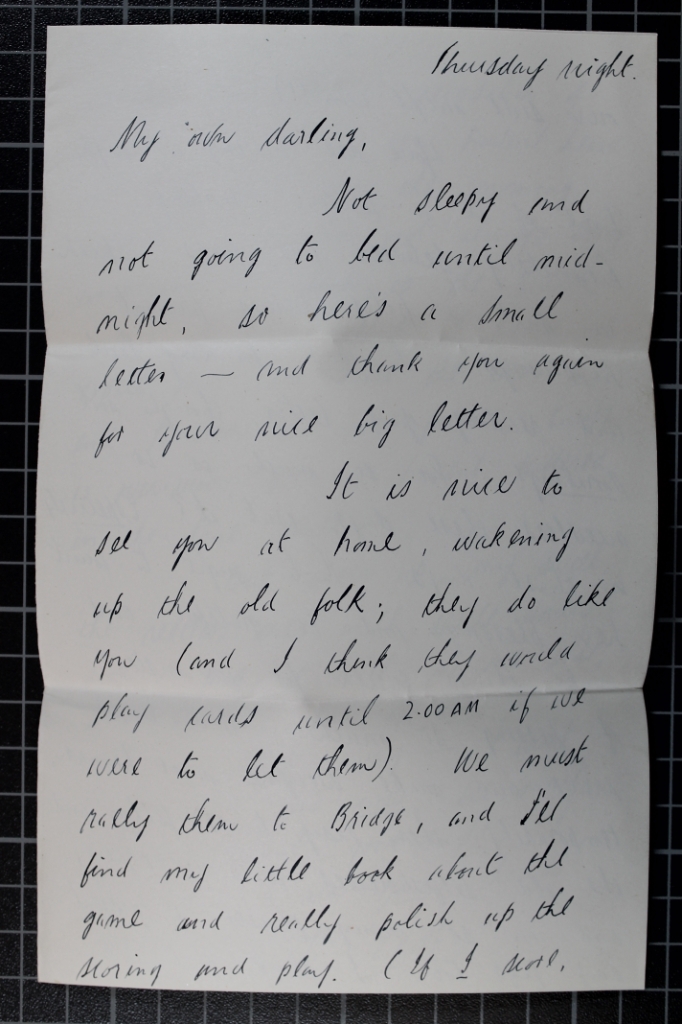 Thursday night.
My own darling,
Not sleepy and
not going to bed until mid-
night, so here's a small
letter — and thank you again
for your nice big letter.
It is nice to
see you at home, wakening
up the old folk; they do like
you (and I think they would
play cards until 2.00 AM if we
were to let them). We must
rally them to Bridge, and I'll
find my little book about the
game and really polish up the
scoring and play. (If I score,